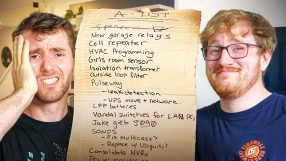 A LIST
New garage relays
Cell repeater
HVAC Programming
Girls room sensor
Isolation transformer
Outside lock filter
Pulseway
- leak detection
- UPS move + network
LFP batteries
Vandal switches for LA PC
Jake gets
SONOS
- Fix multicast?
- Replace w Ubiquiti?
Consolidate NVRs